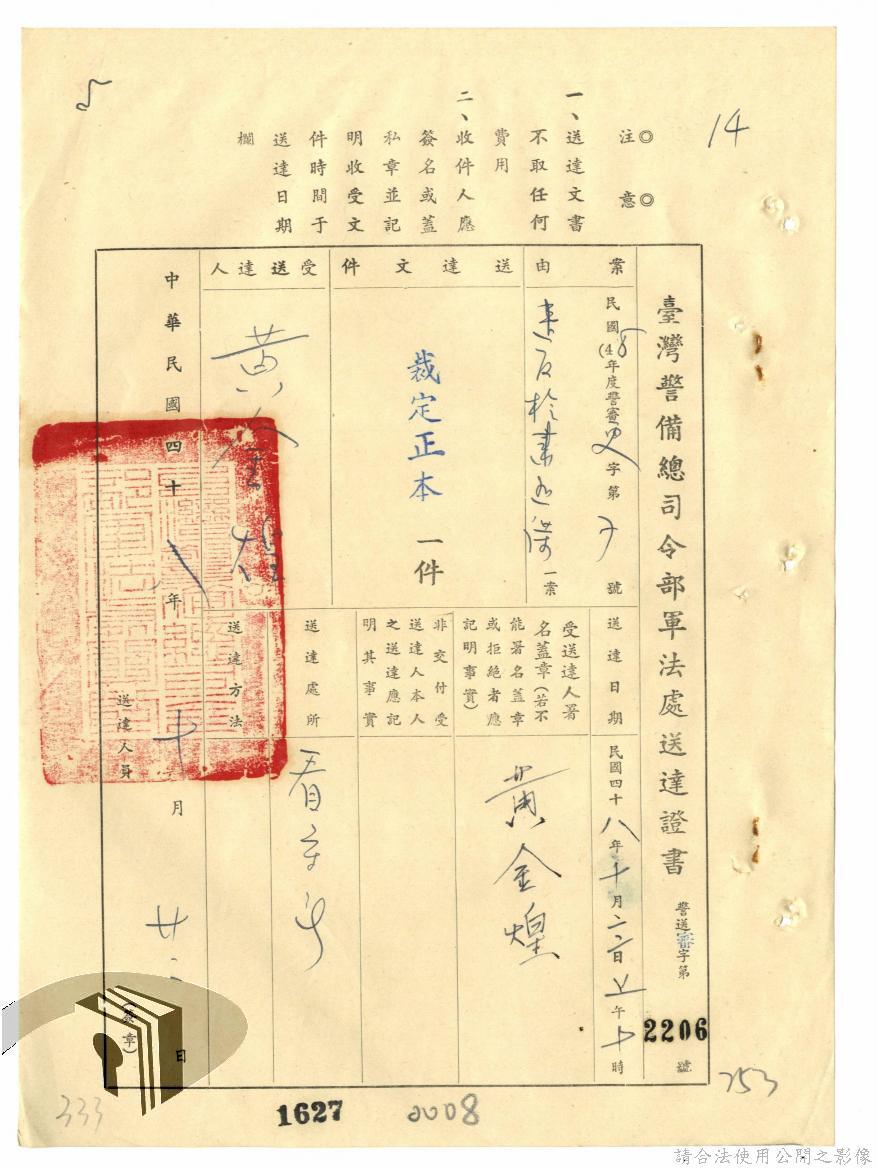 14
◎注意◎
一、送達文書
不取任何
費用
二、收件人應
簽名或蓋
私章並記
明收受文
件時間于
送達日期
欄
臺灣警備總司令部軍法處送達證書
警送審字第2206號
案由
民國(48年度警審更字第 號
一案
送達文件
裁定正本一件
受送達人
黃金煌
送達日期
民國四十八年十月二二日上午十時
受送達人署
名蓋章(若不
能署名蓋章
或拒絕者應
記明事實)
黃金煌
非交付受
送達人本人
之送達應記
明其事實
送達處所
看守所
送達方法
中華民國四十八年十月廿二日
送達人員
(簽章)
333
1627
2008
253
請合法使用公開之影像